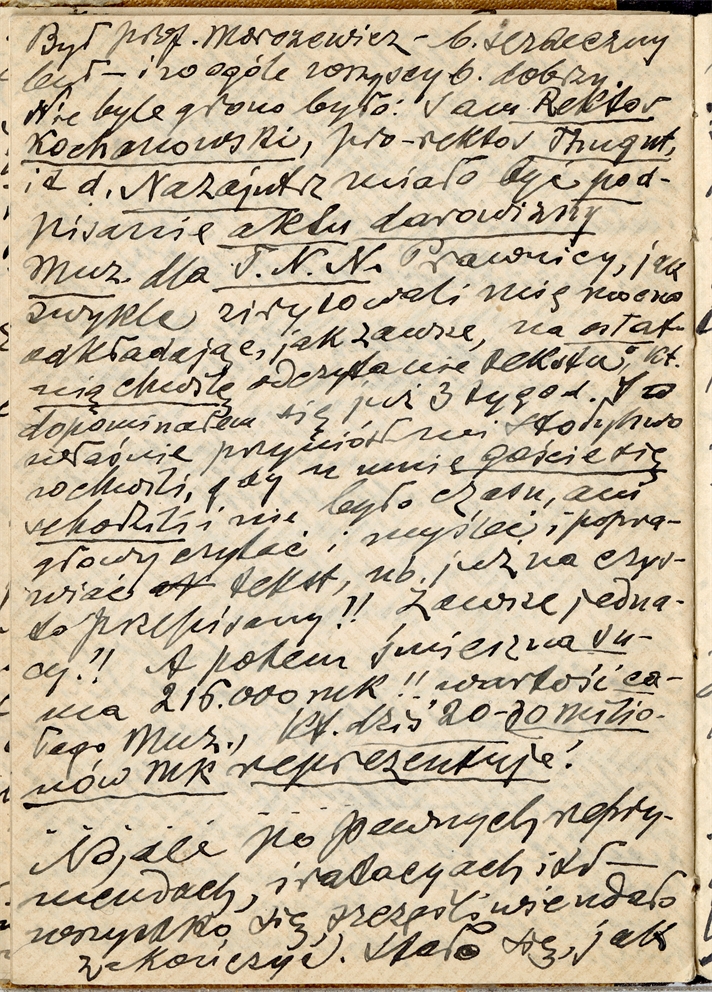 Był prof. Morozewicz – b. serdeczny
był – i wogóle wszyscy b. dobrzy.
Nie byle grono było: Sam Rektor
Kochanowski, pro-rektor Thugut,
i t d. Nazajutrz miało być pod-
pisanie aktu darowizny
Muz. dla T. N. N. Prawnicy, jak
zwykle zirytowali mię mocno
odkładając, jak zawsze, na ostat-
nią chwilę odczytanie tekstu, kt.
dopominałem się już 3 tygod.
właśnie przyniósł mi
wchodzili, gdy u mnie goście się
schodzili i nie było czasu, ani
głowy czytać i myśleć i popra-
wiać tekst, nb. już na czys-
to przepisany!! Zawsze jedna-
cy!! A potem śmieszna su-
ma 216.000 mk!! wartość ca-
łego Muz., kt. dziś 20-30 milio-
nów mk reprezentuje!
No, ale po pewnych repry-
mendach, iratacyach itd –
wszystko się szczęśliwie udało
zakończyć. Stało się, jak